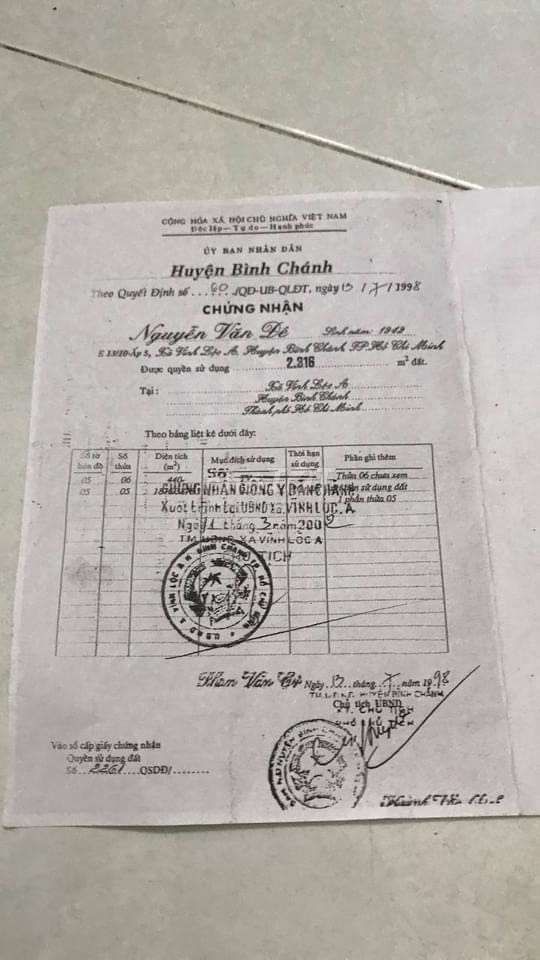 CỘNG HÒA XÃ HỘI CHỦ NGHĨA VIỆT NAM
Độc lập — Tự do — Hạnh phúc
ỦY BAN NHÂN DÂN
Huyện Bình Chánh
Theo Quyết Định số 60 /QĐ-UB-QLĐT, ngày 13 / 7 / 1998
CHỨNG NHẬN
Nguyễn Văn Dê Sinh năm 1949
Ấp 5, Xã Vĩnh Lộc A, Huyện Bình Chánh TP.Hồ Chí Minh
Được quyền sử dụng 2.316 m² đất.
Tại : Xã Vĩnh Lộc A
Huyện Bình Chánh
Thành phố Hồ Chí Minh
Theo bảng liệt kê dưới đây:
Số tờ bản đồ Số thửa Diện tích (m²) Mục đích sử dụng Thời hạn sử dụng Phần ghi thêm
05 06 440 Thửa 06 chưa xem
05 05 sử dụng đất
1 phần thửa 05
Số
CHỨNG NHẬN GIỐNG Y BẢN CHÁNH
Xuất trình tại UBND Xã VĨNH LỘC A
Ngày tháng 3 năm 200
T.M UBND XÃ VĨNH LỘC A
CHỦ TỊCH
Phan Văn
Ngày 13 tháng 7 năm 1998
HUYỆN BÌNH CHÁNH
Chủ tịch UBND
Vào sổ cấp giấy chứng nhận
Quyền sử dụng đất
Số 2261 QSDĐ/